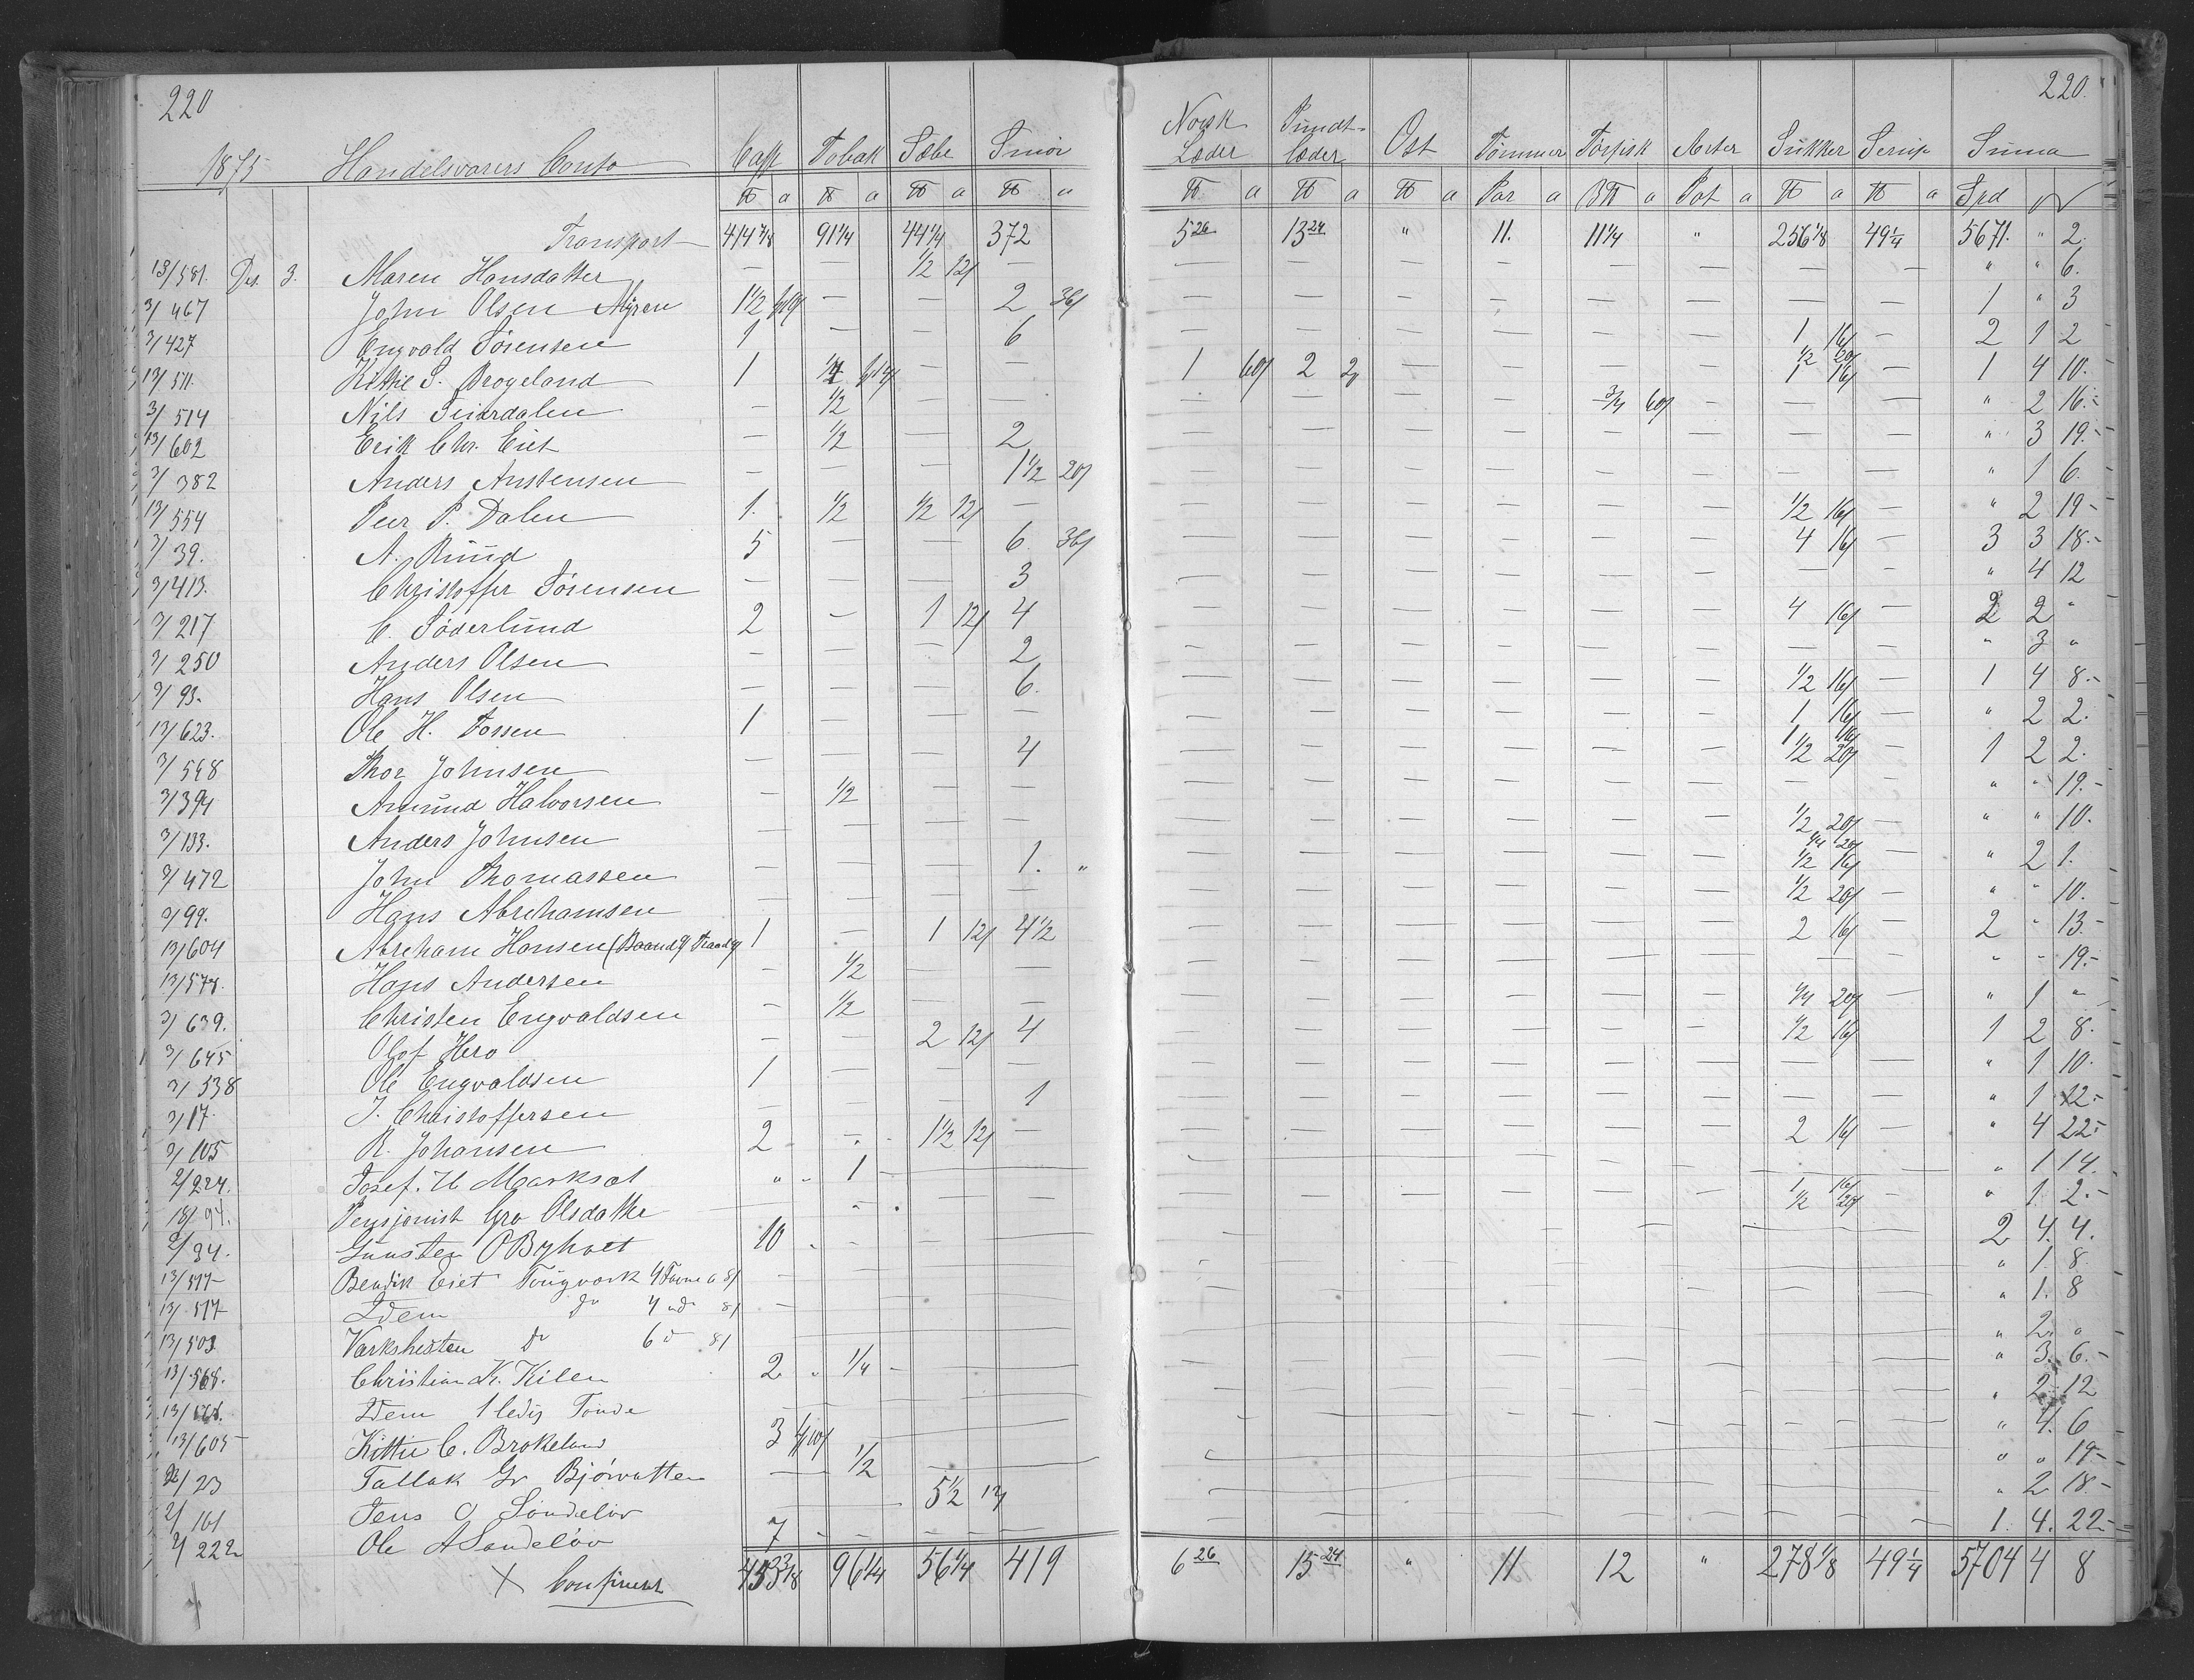 220 220.
1875 Handelsvarers Conto Caffe Tobak Sæbe Smør Norsk Læder Pundt-læder Ost Tømmer Tørfisk Erter Sukker Sirup Suma
℔ a ℔ a ℔ a ℔ a ℔ a ℔ a ℔ a Par a B℔ a Pot a ℔ a ℔ a Spd
Transport 414 7/8 91 1/4 44 1/4 372 5 26 13 24 " 11. 11 1/4 " 256 1/8 49 1/4 5671. " 2
13/581. Des. 3. Maren Hansdatter — — 1/2 12/ — — — — — — — — — " " 6.
3/467 John Olsen Myren 1 1/2 — — 2 36/ — — — — — — — — 1 " 3
3/427 Engvald Sørensen 1 — — 6 — — — — — — 1 16/ — 2 1 2
13/511. Kittil S. Brogeland 1 — — 1 60/ 2 — — — — 1/2 20/ 1 16/ — 1 4 10.
3/514 Nils Seierdalen — 1/2 — — — — — — 3/4 60/ — — — " 2 16.-
13/602 Erik Chr. Eiet — 1/2 — 2 — — — — — — — — " 3 19.-
3/382 Anders Anstensen — — — 1 1/2 20/ — — — — — — — — " 1 6.
13/554 Peer P. Dalen 1. 1/2 1/2 12/ — — — — — — — 1/2 16/ — " 2 19-
3/39. A. Ruud 5 — — 6 36/ — — — — — — 4 16/ — 3 3 18.-
3/413. Christoffer Sørensen — — — 3 — — — — — — — — " 4 12
3/217 C. Søderlund 2 — 1 12/ 4 — — — — — — 4 16/ — 2 2 "
3/250 Anders Olsen — — — 2 — — — — — — — — " 3 "
3/93. Hans Olsen — — — 6. — — — — — — 1/2 16/ — 1 4 8.-
13/623. Ole H. Fossen 1 — — — — — — — — — 1 16/ — " 2 2.
3/548 Thor Johnsen — — — 4 — — — — — — 1 16/ 1/2 20/ — 1 2 2.
3/394 Amund Halvorsen — 1/2 — — — — — — — — — — " " 19.-
3/133. Anders Johnsen — — — — — — — — — — 1/2 20/ — " " 10.
3/472 John Thomassen — — — 1. " — — — — — — 1/4 20/ 1/2 16/ — " 2 1.
3/99. Hans Abrehamsen — — — — — — — — — — 1/2 20/ — " " 10.
13/604 Abreham Hansen 1 — 1 12/ 4 1/2 — — — — — — 2 16/ — 2 " 13.-
13/578. Hans Andersen — 1/2 — — — — — — — — — — " " 19.-
3/639. Christen Engvaldsen — 1/2 — — — — — — — — 1/4 20/ — " 1 "
3/645 Olof Hero — — 2 12/ 4 — — — — — — 1/2 16/ — 1 2 8.
3/538 Ole Engvaldsen 1 — — — — — — — — — — — " 1 10.
3/17. J. Christoffersen — — — 1 — — — — — — — — " 1 12.-
3/105 R. Johansen 2 — 1 1/2 12/ — — — — — — — 2 16/ — " 4 22.-
2/224. Josef. — " 1 — — — — — — — — — — " 1 14.
18/94. Pensjonist Gro Olsdatter — — — — — — — — — — 1 16/ 1/2 20/ — " 1. 2.-
2/34. Gunsten O Byholt 10 — — — — — — — — — — — 2 4. 4.
13/517 Bendik Eiet Tougvark 4 Favne a 8/ — " 1. 8.
13/517 Idem do 4 do 8/ — " 1. 8
13/503 Varkshesten do 6 do 8/ " 2. "
13/568. Christian K. Kilen 2 " 1/4 — " 3. 6.-
13/568. Idem 1 ledig Tønde " 2 12
13/605 Kittil C. Brokeland 3 — " 4. 6
2/23 Tallak Gr Bjørvatten — 1/2 — " " 19-
2/161 Jens O Søndeløv — 5 1/2 12/ — " 2 18.-
2/222 Ole A Søndeløv 7 — — — — 1. 4. 22-
X Confereret 453 3/8 96 1/4 56 1/4 419 6 26 15 24 " 11 12 " 278 1/8 49 1/4 5704 4 8